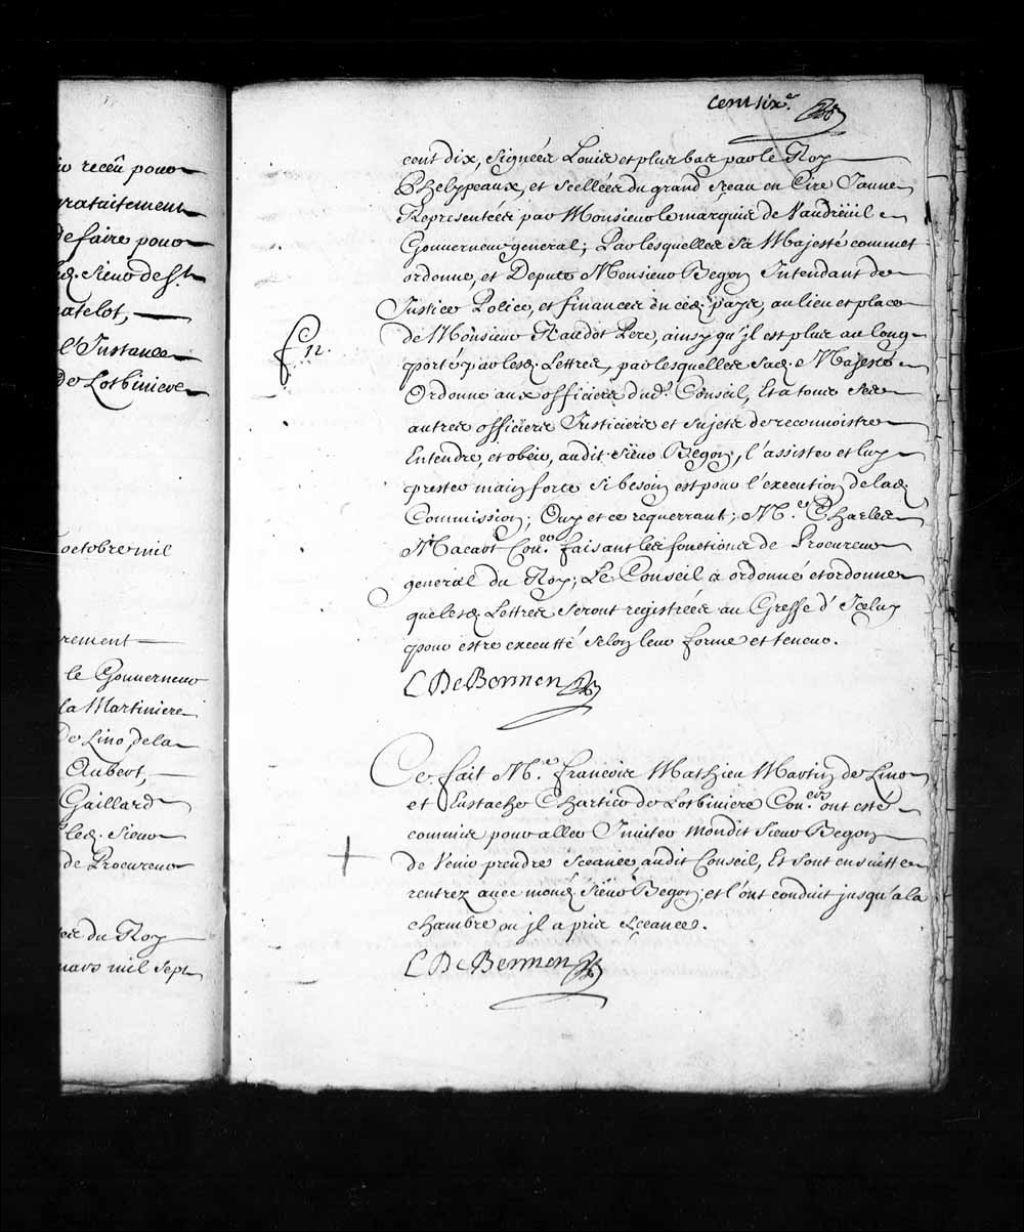 u receu pour
gratuitement
de faire pour
led. sieur de St.
atelot,
l'Instance
de Lotbiniere
octobre mil
rement
le Gouverneur
la Martiniere
de Lino, dela
Aubert,
Gaillard
led. sieur
de Procureur
du Roy
mars mil sept
cent six.e
cent dix, signées Louis et plus bas par le Roy
Phelypeaux, et scellées du grand sceau en Cire Jaune
Representées par Monsieur le marquis de Vaudreüil
Gouverneur general; Par lesquelles Sa Majesté commet
ordonne, et Depute Monsieur Begon Intendant de
Justice Police, et finances en ced. pays, au lieu et place
de Monsieur Raudot Pere, ainsy qu'il est plus au long
porté par lesd. Lettres, par lesquelles Sad.e Majesté
Ordonne aux officiers dud. Conseil, Et a tous ses
autres officiers Justiciers et sujets de reconnoistre
Entendre, et obeir, audit sieur Begon, l'assister et luy
prester main forte si besoin est pour l'execution de lad.
Commission; Ouy et ce requerrant; M.e Charles
Macart Con.er faisant les fonctions de Procureur
general du Roy; Le Conseil a ordonné et ordonne
que lesd. Lettres seront registrées au Greffe d'Iceluy
pour estre executté selon leur forme et teneur.
C DeBermen
Ce fait M.e francois Mathieu Martin de Lino
et Eustache Chartier de Lotbiniere Con.ers ont esté
commis pour aller Inuiter mondit sieur Begon
de Venir prendre sceance audit Conseil, Et sont ensuitte
rentrez auec mond. sieur Begon, et l'ont conduit jusqu'a la
chambre ou jl a pris sceance.
C DeBermen